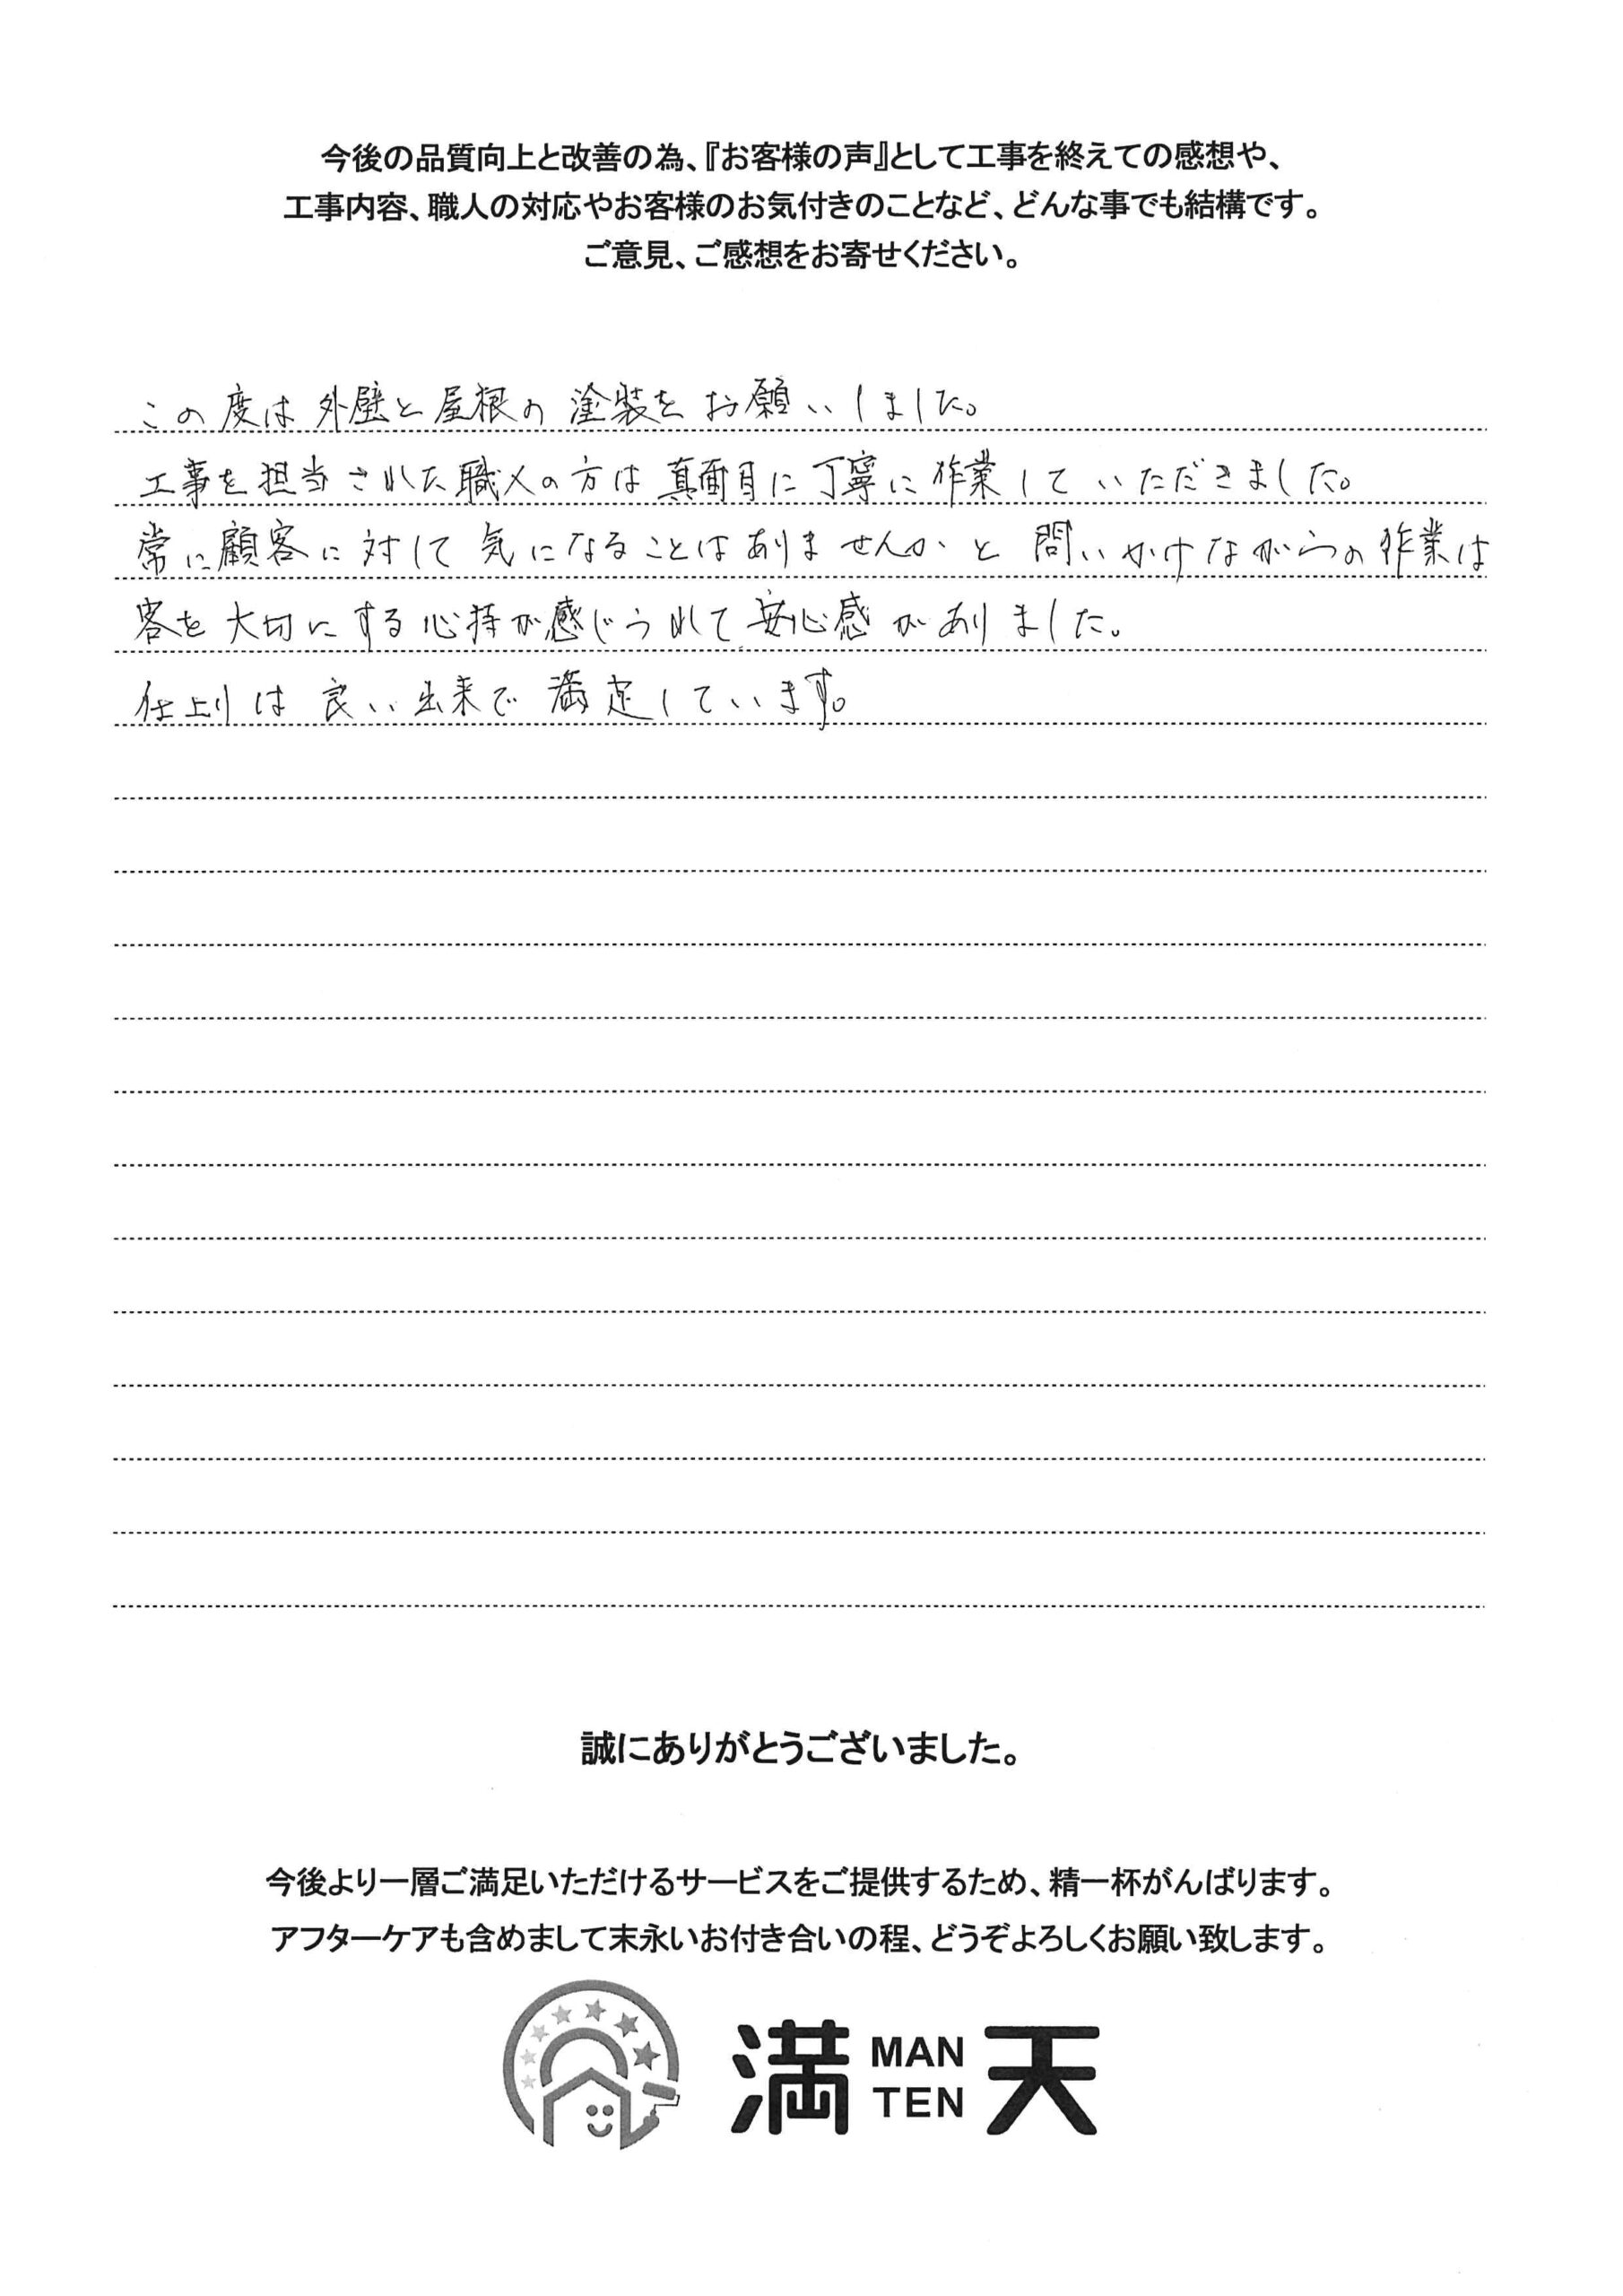 今後の品質向上と改善の為、『お客様の声』として工事を終えての感想や、
工事内容、職人の対応やお客様のお気付きのことなど、どんな事でも結構です。
ご意見、ご感想をお寄せください。
この度は外壁と屋根の塗装をお願いしました。
工事を担当された職人の方は真面目に丁寧に作業していただきました。
常に顧客に対して気になることはありませんかと問いかけながらの作業は
客を大切にする心持が感じられて安心感がありました。
仕上りは良い出来で満足しています。
誠にありがとうございました。
今後より一層ご満足いただけるサービスをご提供するため、精一杯がんばります。
アフターケアも含めまして末永いお付き合いの程、どうぞよろしくお願い致します。
満 MAN TEN 天